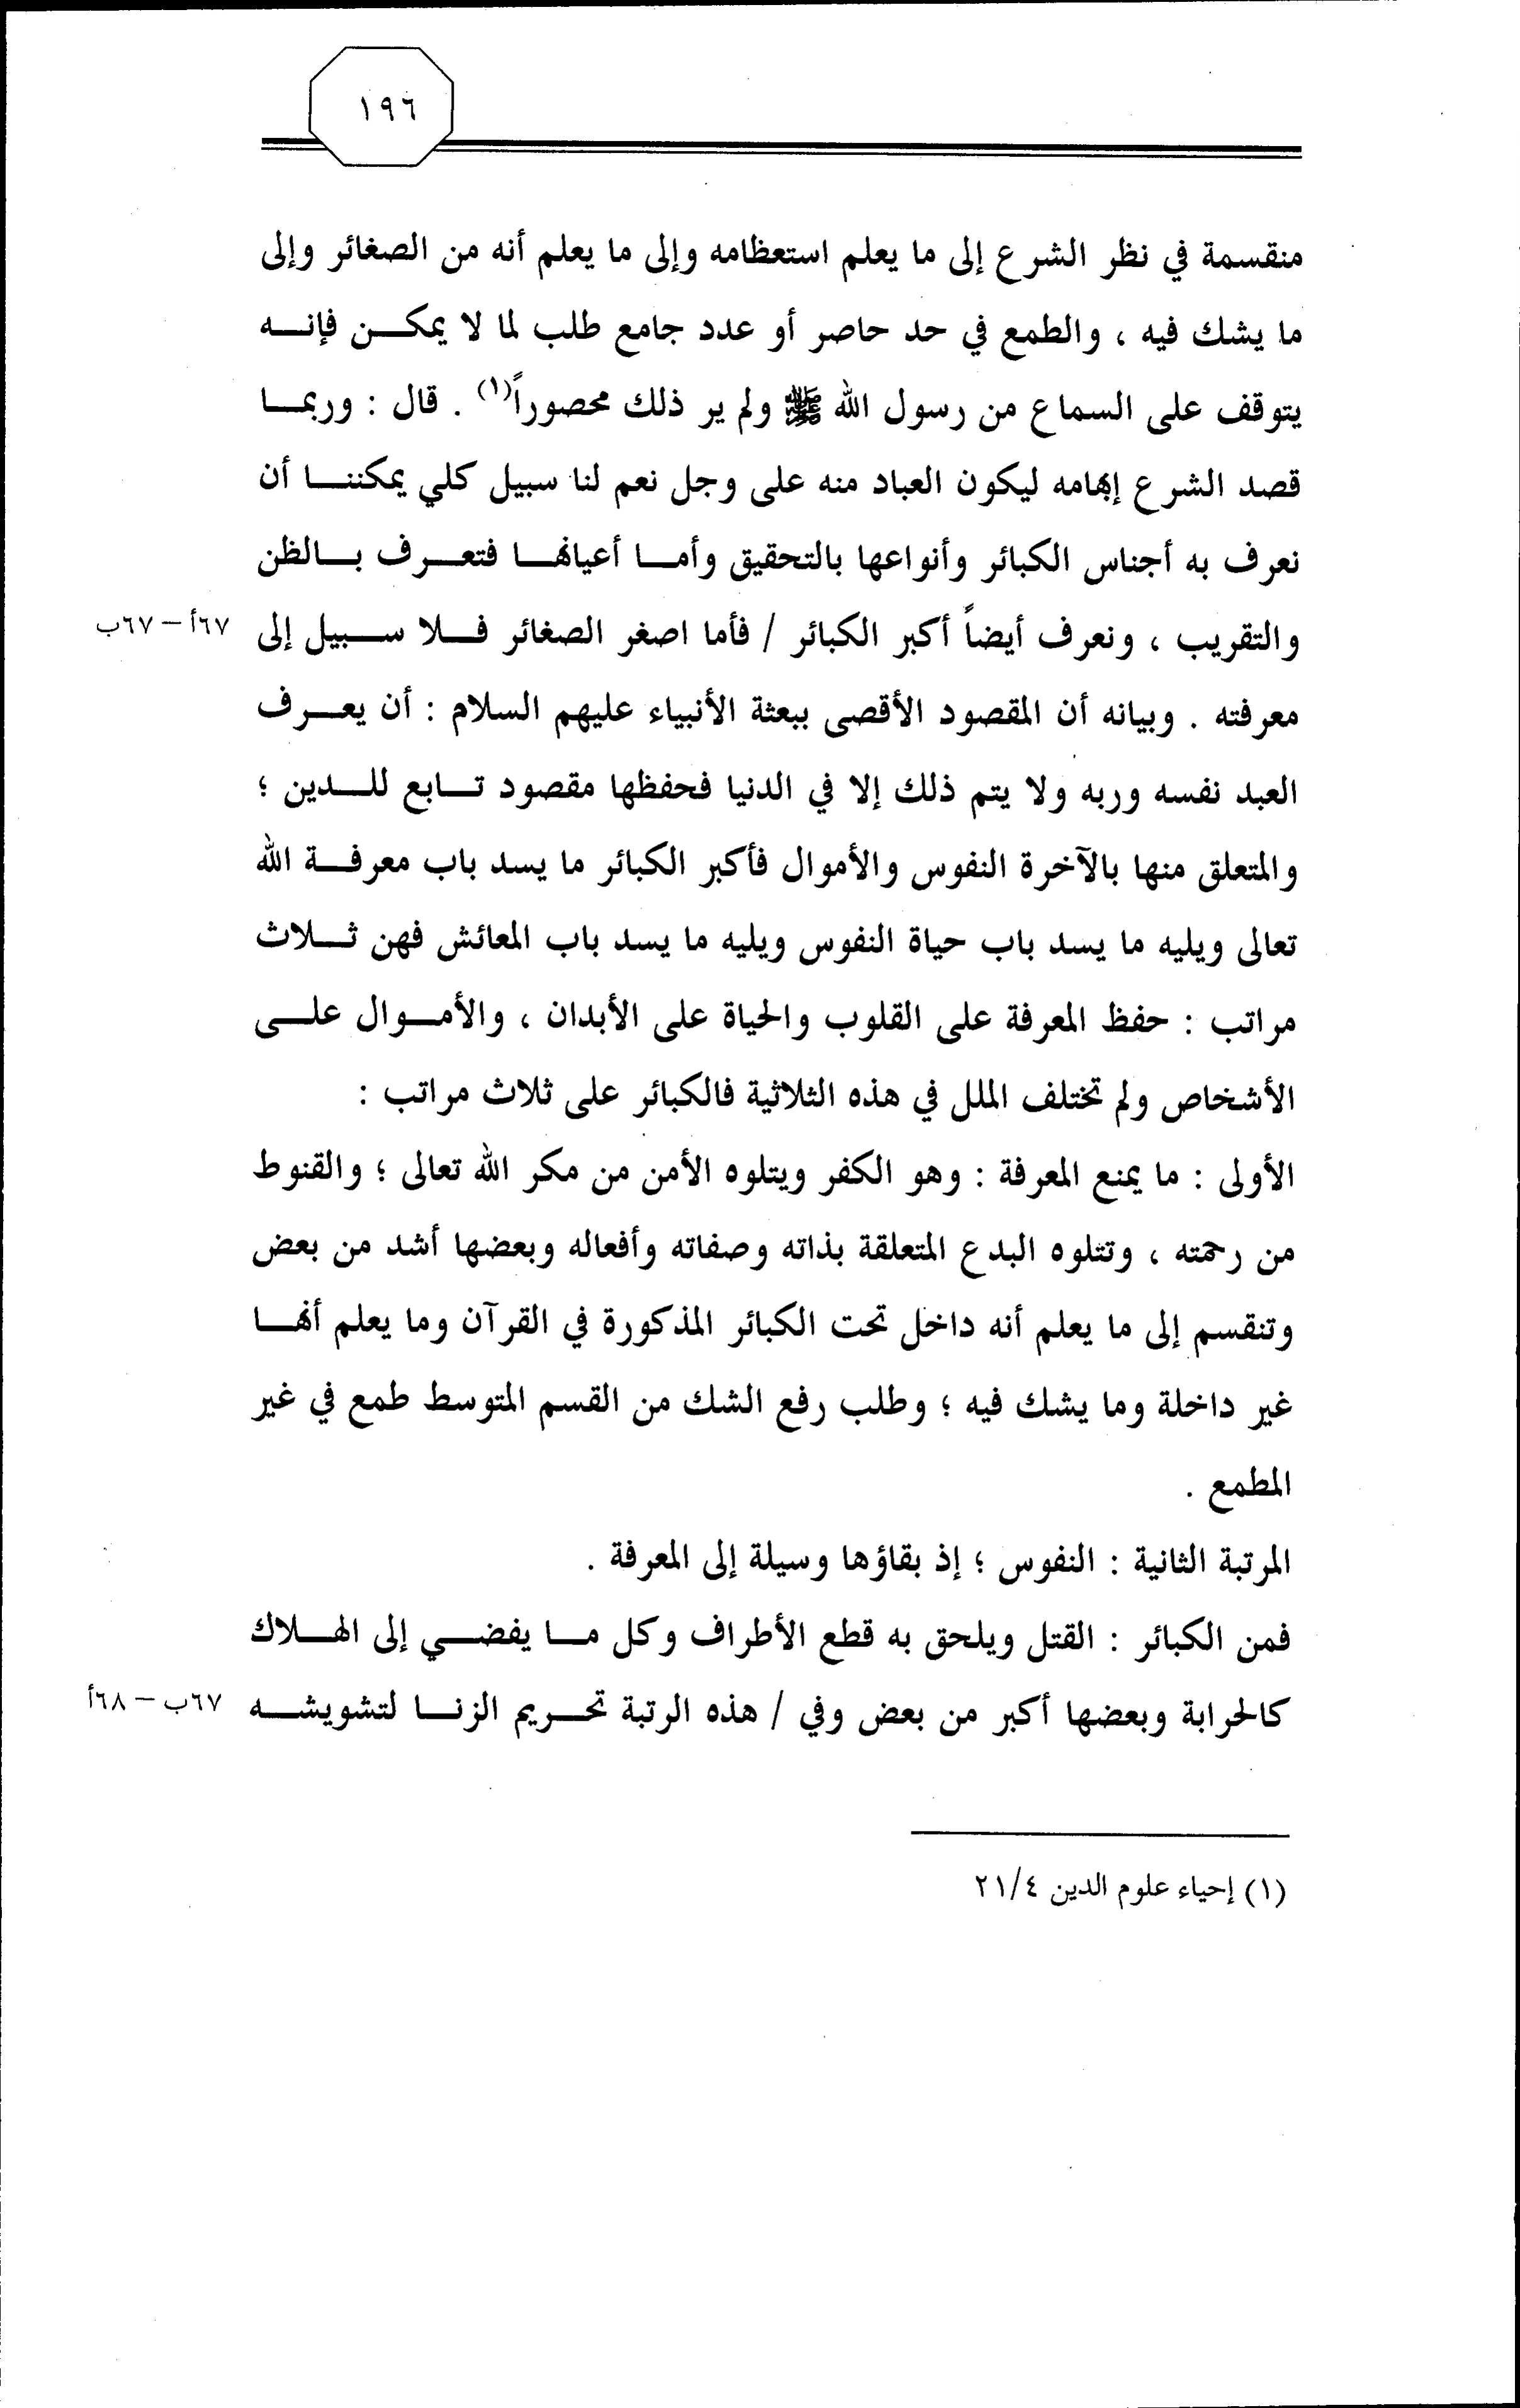 ١٩٦
منقسمة في نظر الشرع إلى ما يعلم استعظامه وإلى ما يعلم أنه من الصغائر وإلى
ما يشك فيه ، والطمع في حد حاصر أو عدد جامع طلب لما لا يمكن فإنه
يتوقف على السماع من رسول الله ﷺ ولم ير ذلك محصوراً(١) . قال : وربما
قصد الشرع إبهامه ليكون العباد منه على وجل نعم لنا سبيل كلي يمكننا أن
نعرف به أجناس الكبائر وأنواعها بالتحقيق وأما أعيانها فتعرف بالظن
والتقريب ، ونعرف أيضاً أكبر الكبائر / فأما اصغر الصغائر فلا سبيل إلى
٦٧أ – ٦٧ب
معرفته . وبيانه أن المقصود الأقصى ببعثة الأنبياء عليهم السلام : أن يعرف
العبد نفسه وربه ولا يتم ذلك إلا في الدنيا فحفظها مقصود تابع للدين ؛
والمتعلق منها بالآخرة النفوس والأموال فأكبر الكبائر ما يسد باب معرفة الله
تعالى ويليه ما يسد باب حياة النفوس ويليه ما يسد باب المعائش فهن ثلاث
مراتب : حفظ المعرفة على القلوب والحياة على الأبدان ، والأموال على
الأشخاص ولم تختلف الملل في هذه الثلاثية فالكبائر على ثلاث مراتب :
الأولى : ما يمنع المعرفة : وهو الكفر ويتلوه الأمن من مكر الله تعالى ؛ والقنوط
من رحمته ، وتتلوه البدع المتعلقة بذاته وصفاته وأفعاله وبعضها أشد من بعض
وتنقسم إلى ما يعلم أنه داخل تحت الكبائر المذكورة في القرآن وما يعلم أنها
غير داخلة وما يشك فيه ؛ وطلب رفع الشك من القسم المتوسط طمع في غير
المطمع .
المرتبة الثانية : النفوس ؛ إذ بقاؤها وسيلة إلى المعرفة .
فمن الكبائر : القتل ويلحق به قطع الأطراف وكل ما يفضي إلى الهلاك
كالحرابة وبعضها أكبر من بعض وفي / هذه الرتبة تحريم الزنا لتشويشه
٦٧ب – ٦٨أ
(١) إحياء علوم الدين ٢١/٤